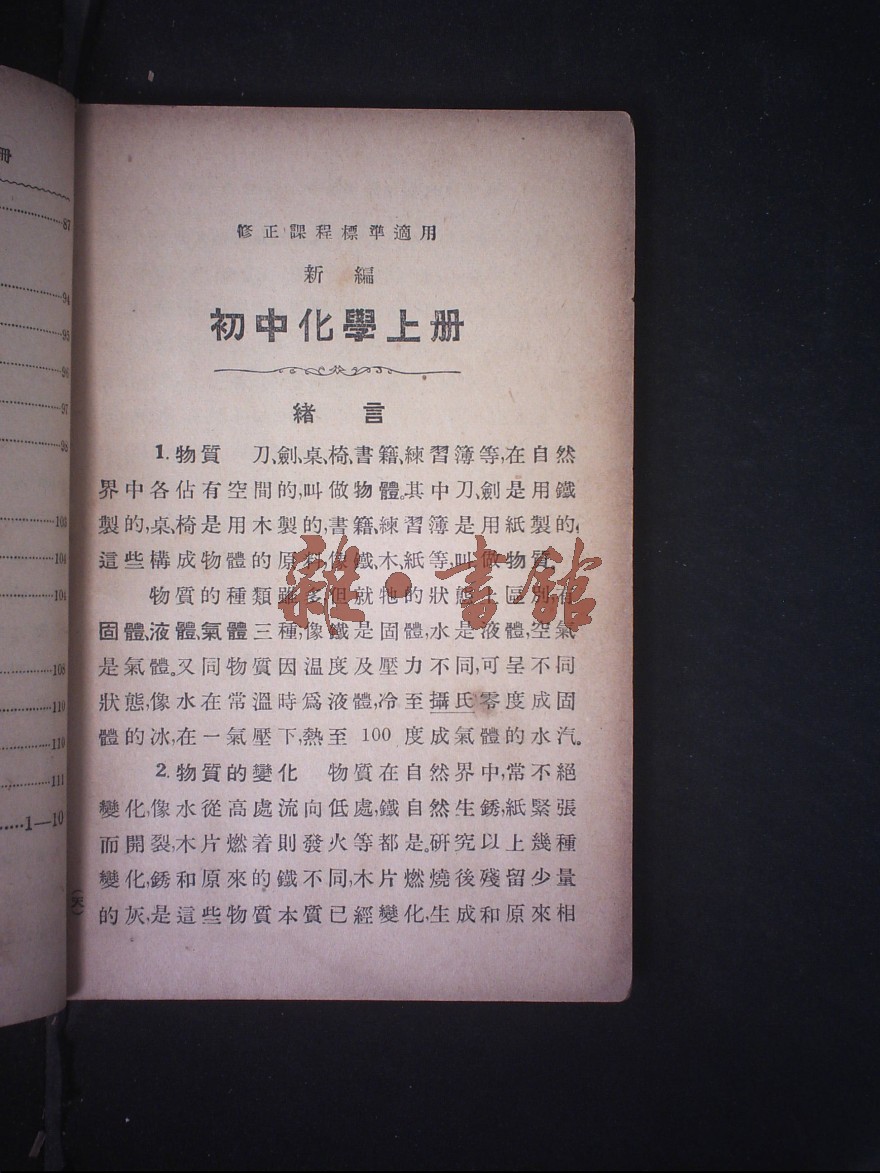 冊
87
94
95
96
97
98
103
104
104
108
110
110
111
1—10
修正課程標準適用
新編
初中化學上册
緒言
1. 物質 刀、劍、桌、椅、書籍、練習簿等,在自然
界中各佔有空間的,叫做物體。其中刀、劍是用鐵
製的,桌、椅是用木製的,書籍、練習簿是用紙製的,
這些構成物體的原料像鐵、木、紙等,叫做物質。
物質的種類雖多但就牠的狀態上區別,有
固體、液體、氣體三種,像鐵是固體,水是液體,空氣
是氣體。又同物質因温度及壓力不同,可呈不同
狀態,像水在常溫時爲液體,冷至攝氏零度成固
體的冰,在一氣壓下,熱至 100 度成氣體的水汽。
2. 物質的變化 物質在自然界中,常不絕
變化,像水從高處流向低處,鐵自然生銹,紙緊張
而開裂,木片燃着則發火等都是。研究以上幾種
變化,銹和原來的鐵不同,木片燃燒後殘留少量
的灰,是這些物質本質已經變化,生成和原來相
雜·書館